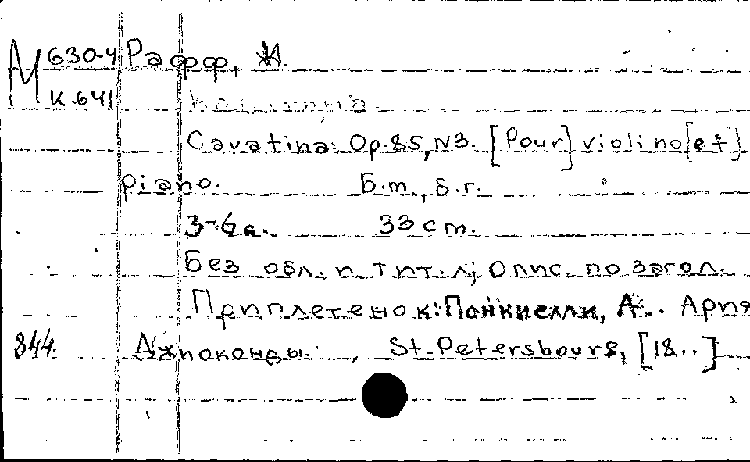 М 630-4 Рафф, И.
К 641
Каватина
Cavatina. Op. 85, N3. [Pour] violino [et]
piano. Б.м., б.г.
3-6 с. 33 cm.
Без обл. и тит. л; Опис. по загол.
Приплетено к: Понкиелли, А.. Ария
844. Джиоконды. , St.-Petersbourg, [18..]